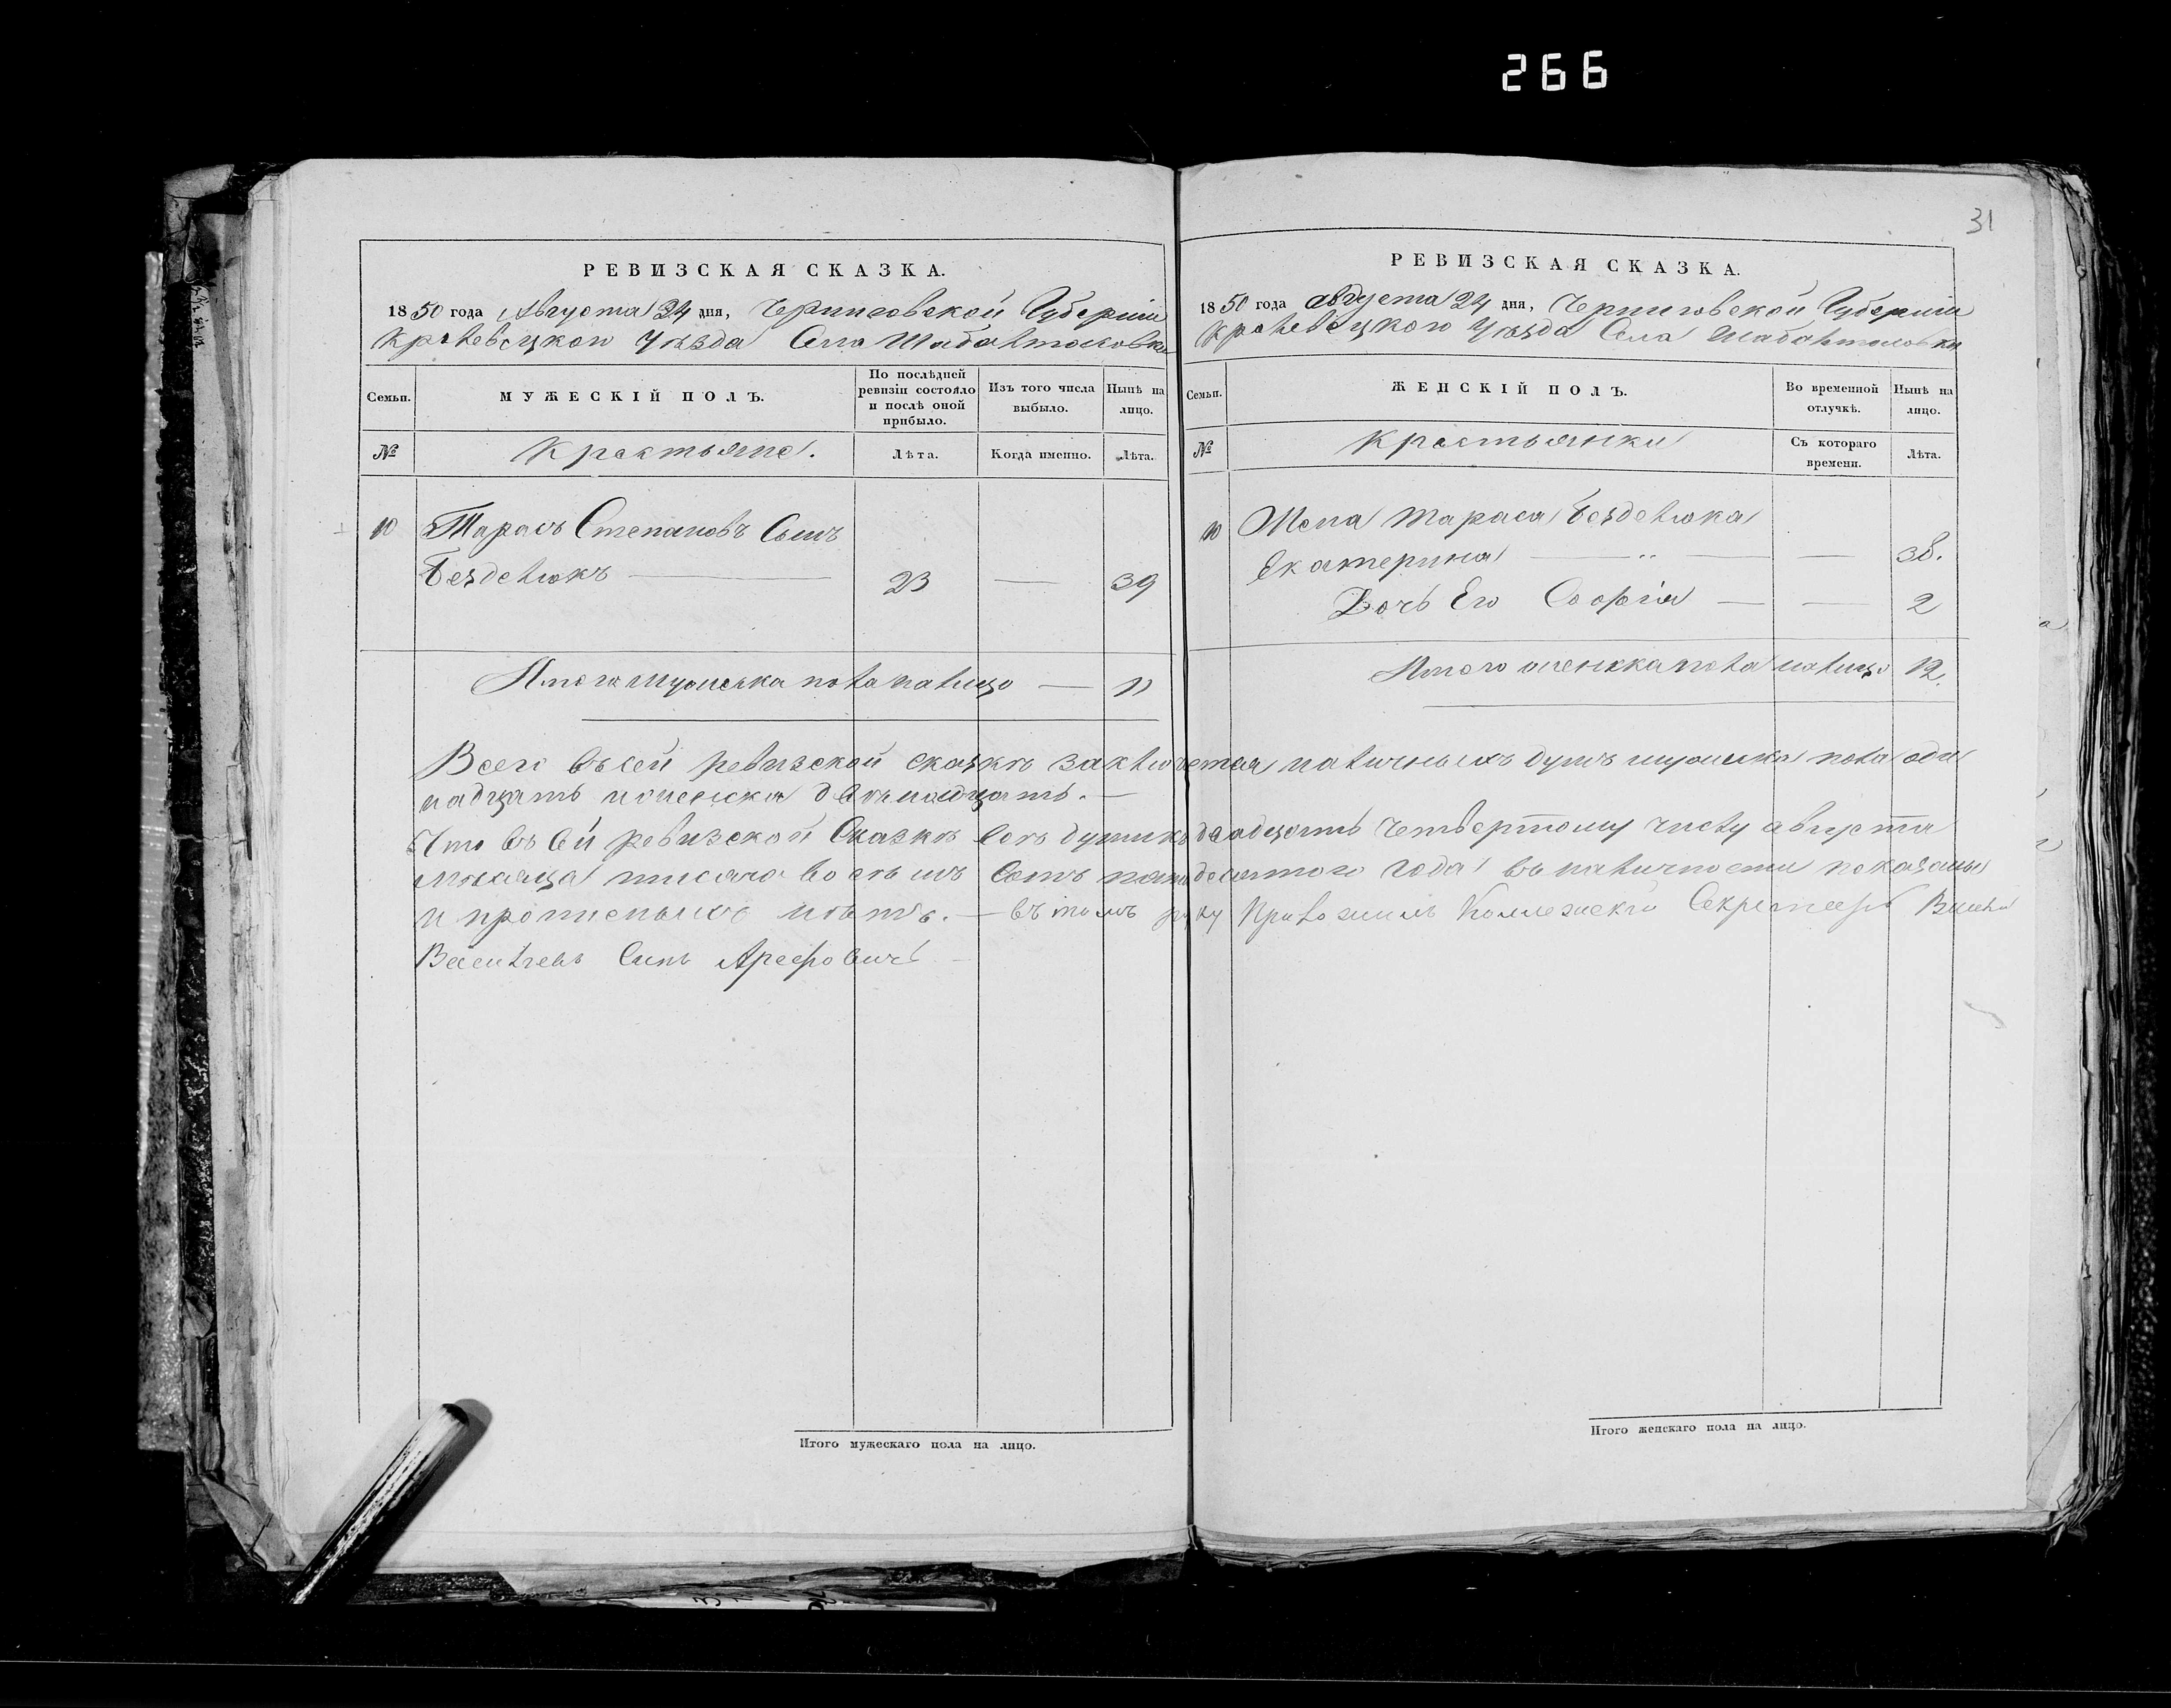 266
31
РЕВИЗСКАЯ СКАЗКА.
1850 года Августа 24 дня, Черниговской Губерніи
Кролевецкого Уѣзда Села Шабалтасовки
Семьи.
МУЖЕСКІЙ ПОЛЪ.
По послѣдней ревизіи состояло и послѣ оной прибыло.
Изъ того числа выбыло.
Нынѣ на лицо.
№
Крестьяне.
Лѣта.
Когда именно.
Лѣта.
10 Тарасъ Степановъ Сынъ
Безделюкъ — 23 — 39
Итого мужеска пола налицо — 11
РЕВИЗСКАЯ СКАЗКА.
1850 года августа 24 дня, Черниговской Губерніи
Кролевецкого Уѣзда Села Шабалтасовки
Семьи.
ЖЕНСКІЙ ПОЛЪ.
Во временной отлучкѣ.
Нынѣ на лицо.
№
Крестьянки
Съ котораго времени.
Лѣта.
10 Жена Тараса Безделюка
Екатерина — „ — — 38.
Дочь Его Софія — — 2
Итого женска пола налицо 12.
Всего всей ревизской сказкѣ заключается наличныхъ душъ мужеска пола оди
надцать и женска двенадцать. —
Что въ сей ревизской Сказкѣ всѣ души къ двадцать четвертому числу августа
мѣсяца тысяча восемь сотъ пятидесятого года въ наличности показаны
и прописныхъ нѣтъ. — въ томъ руку Приложилъ Коллежскій Секретарь
Сынъ Арефовичъ
Итого мужескаго пола на лицо.
Итого женскаго пола на лицо.